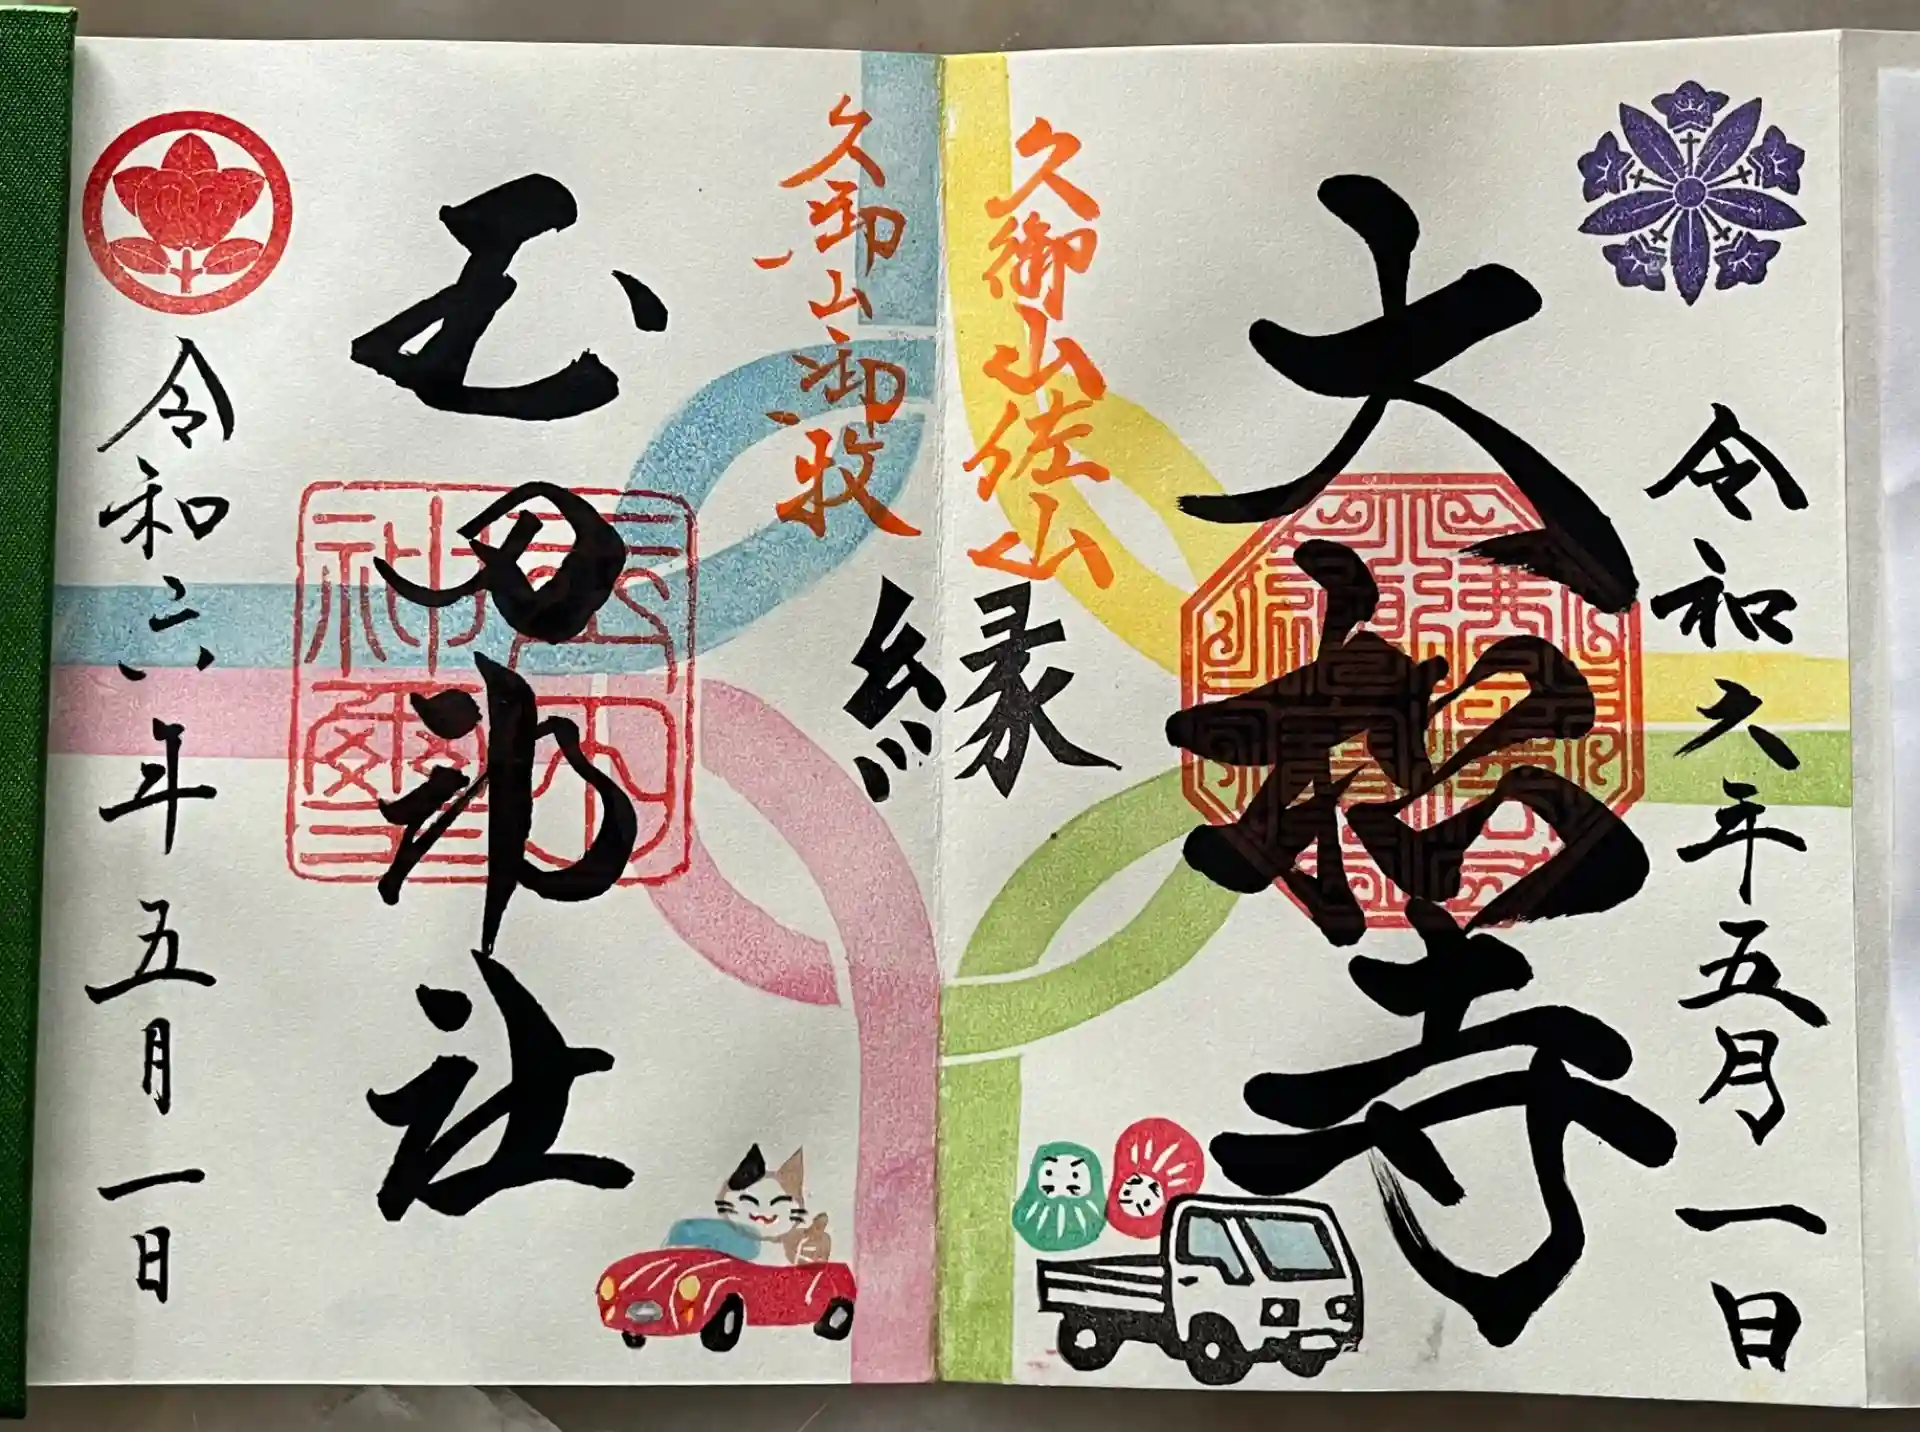 令和六年五月一日
大松寺
久御山佐山
縁
久御山御牧
玉田神社
令和六年五月一日